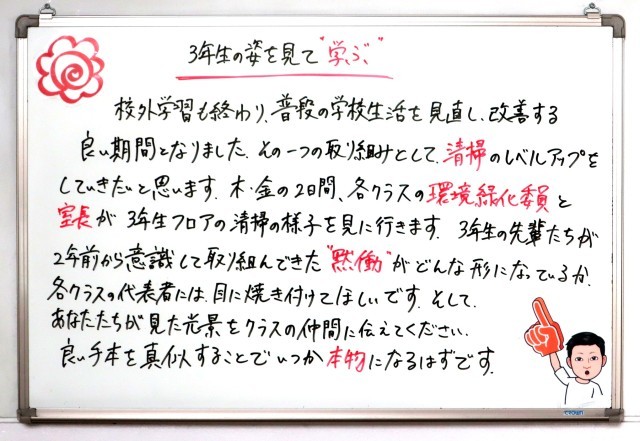 3年生の姿を見て"学ぶ"
校外学習も終わり、普段の学校生活を見直し、改善する
良い期間となりました。その一つの取り組みとして、清掃のレベルアップを
していきたいと思います。木・金の2日間、各クラスの環境緑化委員と
室長が3年生フロアの清掃の様子を見に行きます。3年生の先輩たちが
2年前から意識して取り組んできた"黙働"がどんな形になっているか、
各クラスの代表者には、目に焼き付けてほしいです。そして、
あなたたちが見た光景をクラスの仲間に伝えてください。
良い手本を真似することでいつか本物になるはずです。
CROWN